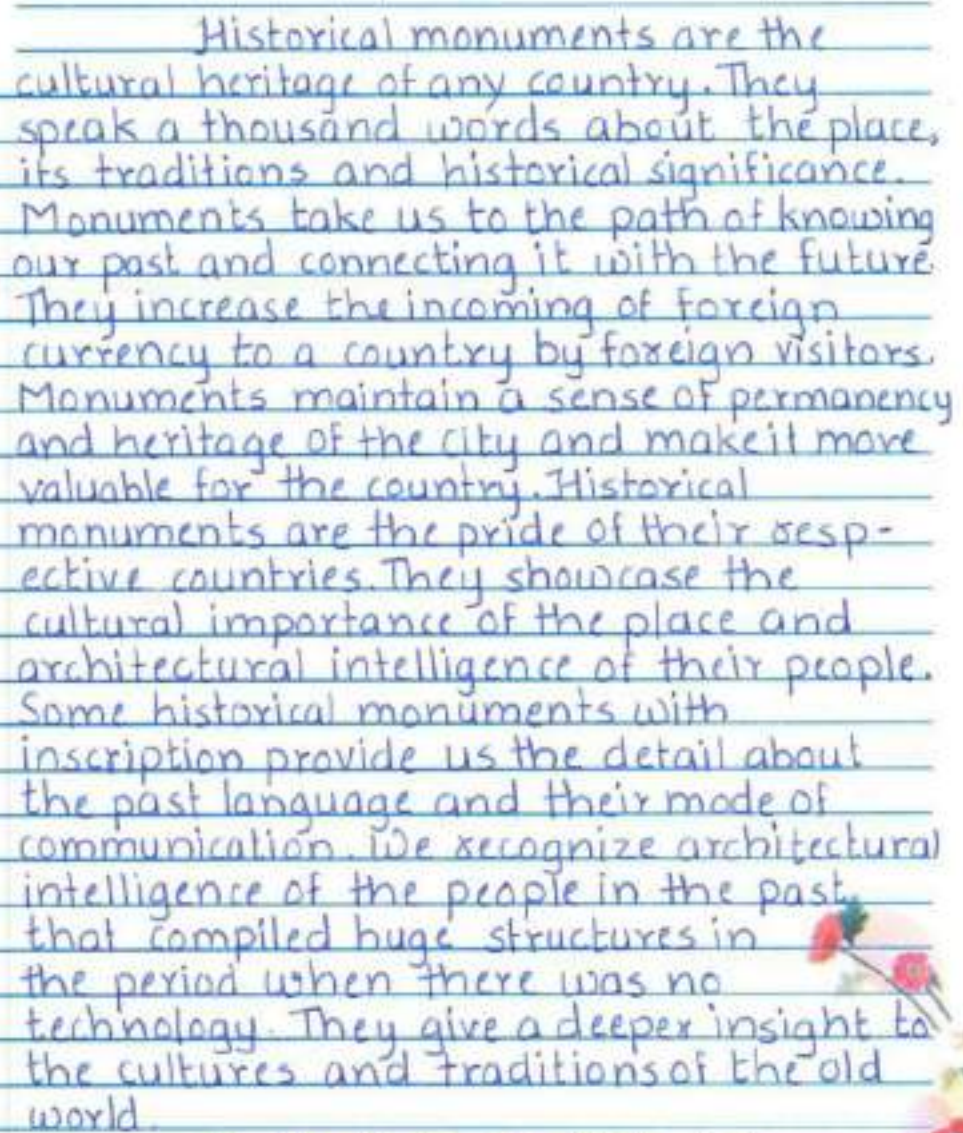 Historical monuments are the
cultural heritage of any country. They
speak a thousand words about the place,
its traditions and historical significance.
Monuments take us to the path of knowing
our past and connecting it with the future.
They increase the incoming of foreign
currency to a country by foreign visitors.
Monuments maintain a sense of permanency
and heritage of the city and make it more
valuable for the country. Historical
monuments are the pride of their resp-
ective countries. They showcase the
cultural importance of the place and
architectural intelligence of their people.
Some historical monuments with
inscription provide us the detail about
the past language and their mode of
communication. We recognize architectural
intelligence of the people in the past,
that compiled huge structures in
the period when there was no
technology. They give a deeper insight to
the cultures and traditions of the old
world.